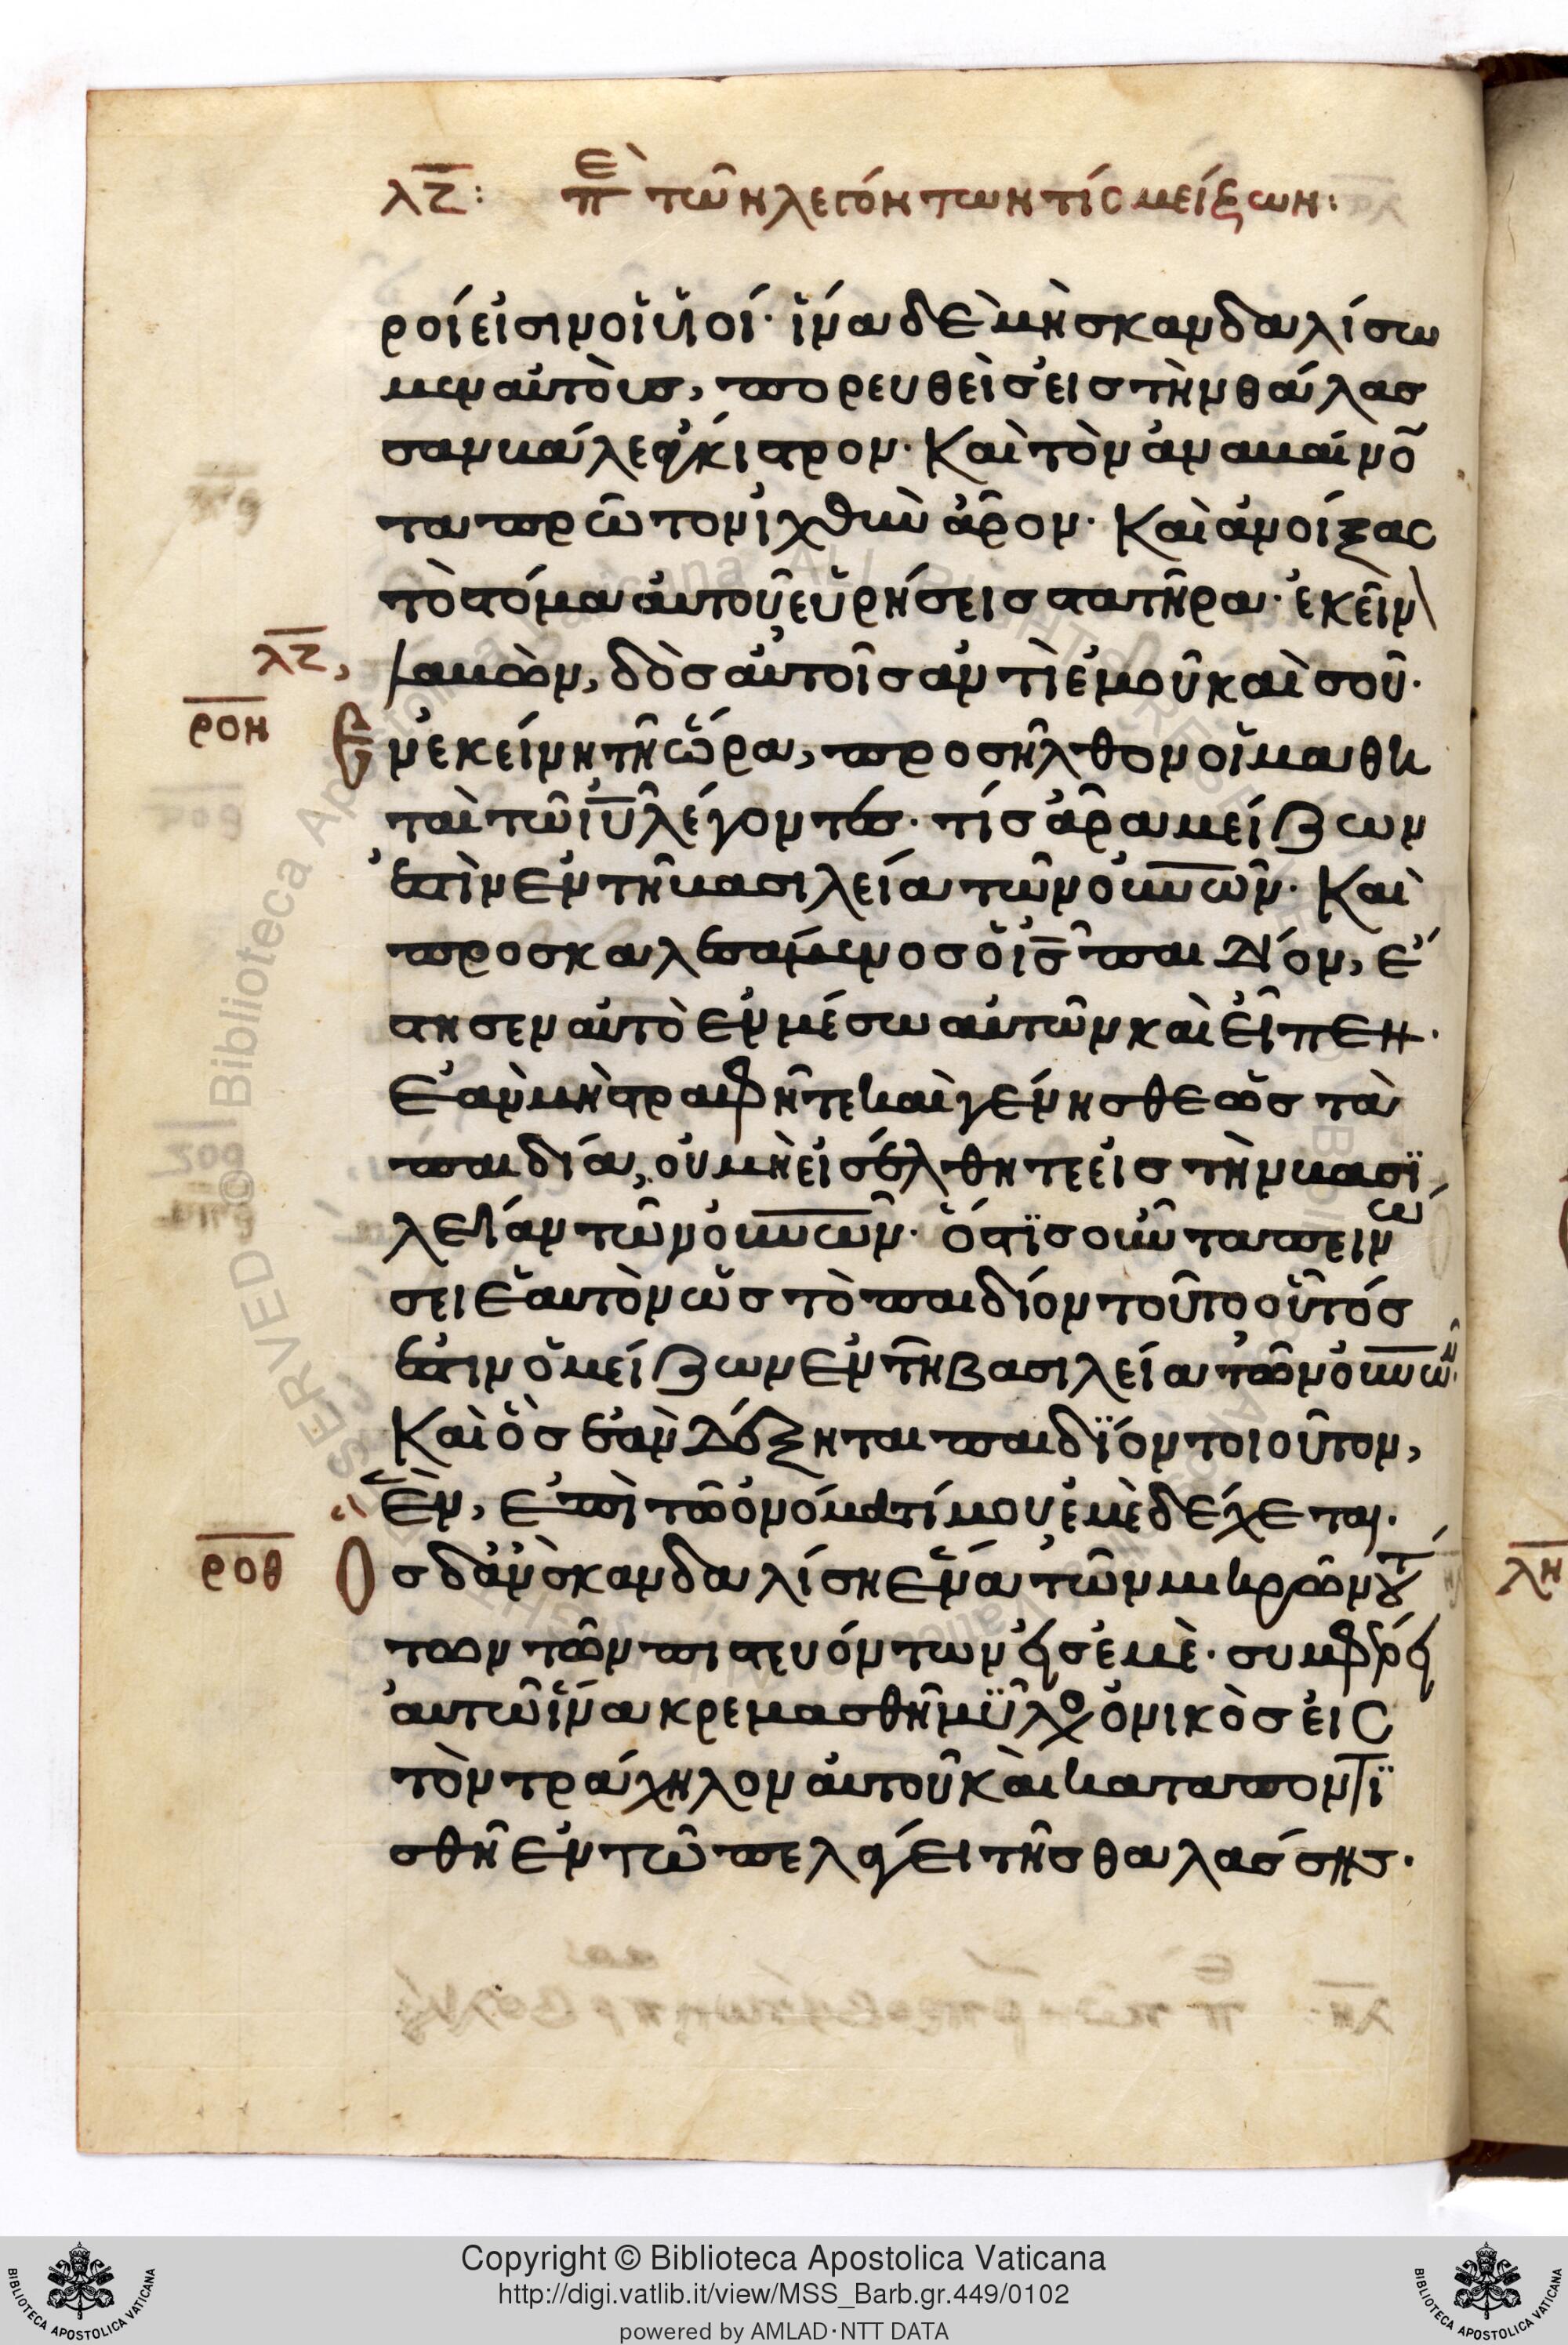 λζ: πε τῶν λεγόντων τίς μείζων:
ροί εἰσιν οἱ υἱοί· ἵνα δὲ μὴ σκανδαλίσω
μεν αὐτοὺς, πορευθεὶς εἰς τὴν θάλασ
σαν βάλε ἄγκιστρον· Καὶ τὸν ἀναβαίνο
τα πρῶτον ἰχθὺν ἆρον· Καὶ ἀνοίξας
τὸ στόμα αὐτοῦ εὑρήσεις στατῆρα· ἐκεῖν
λζ, λαβὼν, δὸς αὐτοῖς ἀντὶ ἐμοῦ καὶ σοῦ·
ροη Ἐν ἐκείνη τῆ ὥρα, προσῆλθον οἱ μαθη
ταὶ τῶ ιῦ λέγοντες· τίς ἄρα μείζων
ἐστὶν ἐν τῆ βασιλεία τῶν οὐνῶν· Καὶ
προσκαλεσάμενος ὁ ις παιδίον, ἔ
στησεν αὐτὸ ἐν μέσω αὐτῶν καὶ εἶπεν·
Ἐὰν μὴ στραφῆτε καὶ γένησθε ὡς τὰ
παιδία, οὐ μὴ εἰσέλθητε εἰς τὴν βασϊ
λείαν τῶν οὐνῶν· ὅστϊς οὖν ταπεινώ
σει ἑαυτὸν ὡς τὸ παιδίον τοῦτο οὗτός
ἐστιν ὁ μείζων ἐν τῆ βασιλεία τῶν οὐνῶν·
Καὶ ὃς ἐὰν δέξηται παιδϊόν τοιοῦτον,
ἓν, ἐπὶ τῶ ὀνόματί μου ἐμὲ δέχεται·
ροθ Ὃς δἂν σκανδαλίση ἕνα τῶν μικρῶν τού
των τῶν πιστευόντων εἰς ἐμὲ· συμφέρει
αὐτῶ ἵνα κρεμασθῆ μϋλος ὀνικὸς εἰς
τὸν τράχηλον αὐτοῦ καὶ καταποντϊ
σθῆ ἐν τῶ πελάγει τῆς θαλάσσης·
λη
Copyright © Biblioteca Apostolica Vaticana
http://digi.vatlib.it/view/MSS_Barb.gr.449/0102
powered by AMLAD·NTT DATA